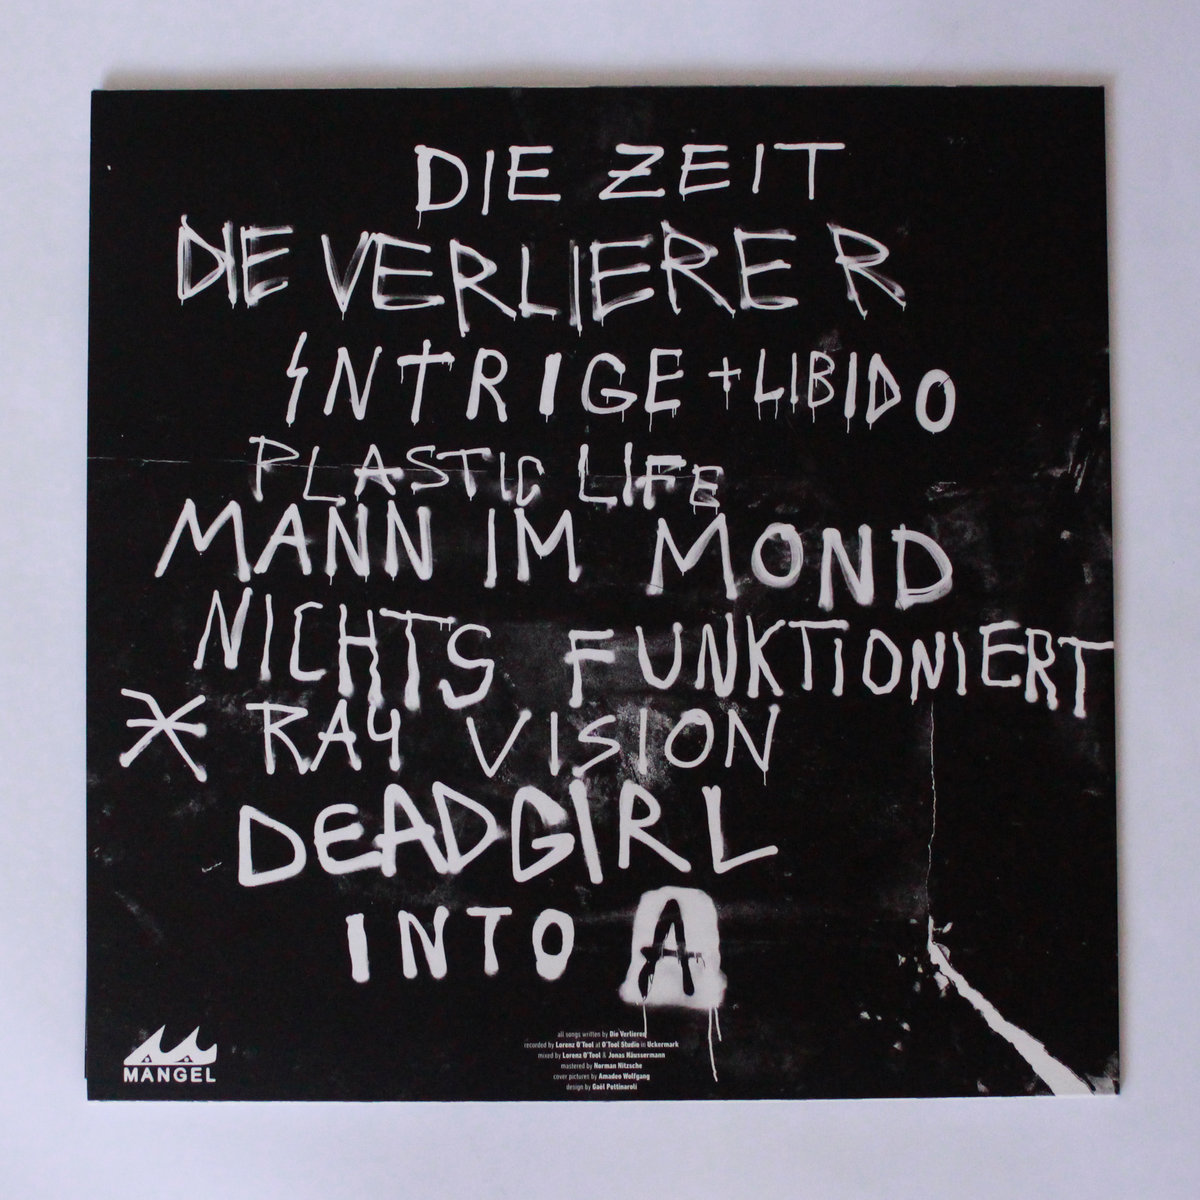 DIE ZEIT
DIE VERLIERER
INTRIGE + LIBIDO
PLASTIC LIFE
MANN IM MOND
NICHTS FUNKTIONIERT
X RAY VISION
DEADGIRL
INTO A
all songs written by Die Verlierer
recorded by Lorenz O'Tool at O'Tool Studio in Uckermark
mixed by Lorenz O'Tool & Jonas Häussermann
mastered by Norman Nitzsche
cover pictures by Amadeo Wolfgang
design by Gaël Pettinaroli
MANGEL